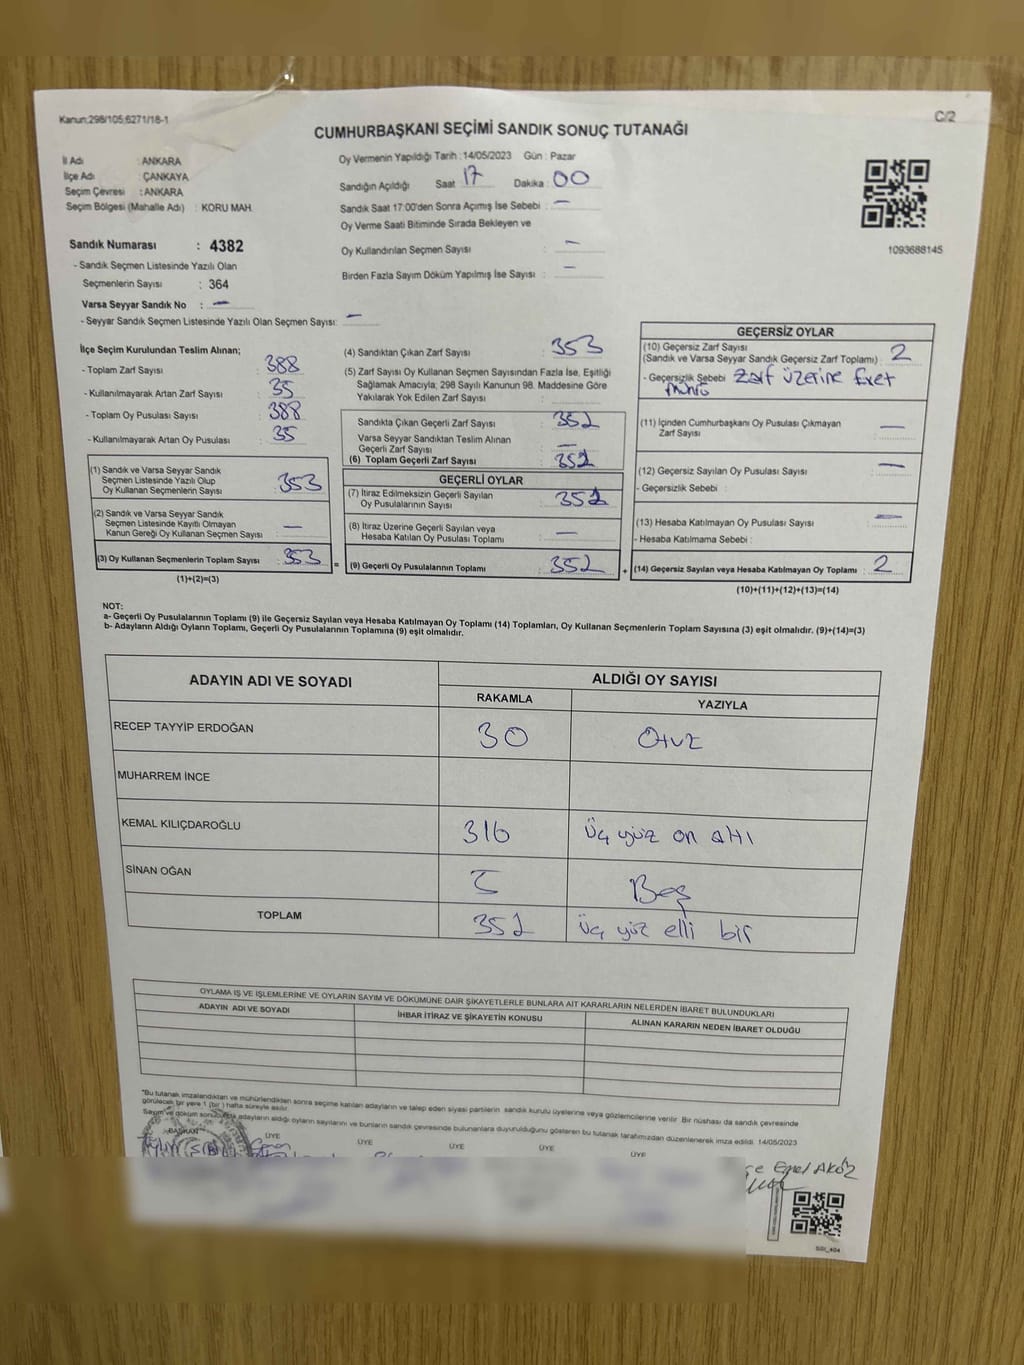 Kanun:298/105,6271/18-1
C/2
CUMHURBAŞKANI SEÇİMİ SANDIK SONUÇ TUTANAĞI
İl Adı : ANKARA
İlçe Adı : ÇANKAYA
Seçim Çevresi : ANKARA
Seçim Bölgesi (Mahalle Adı) : KORU MAH.
Oy Vermenin Yapıldığı Tarih :14/05/2023 Gün : Pazar
Sandığın Açıldığı Saat 17 Dakika : 00
Sandık Saat 17:00'den Sonra Açımış İse Sebebi : —
Oy Verme Saati Bitiminde Sırada Bekleyen ve
Oy Kullandırılan Seçmen Sayısı : —
Birden Fazla Sayım Döküm Yapılmış İse Sayısı : —
1093688145
Sandık Numarası : 4382
- Sandık Seçmen Listesinde Yazılı Olan
Seçmenlerin Sayısı : 364
Varsa Seyyar Sandık No : —
- Seyyar Sandık Seçmen Listesinde Yazılı Olan Seçmen Sayısı: —
İlçe Seçim Kurulundan Teslim Alınan;
- Toplam Zarf Sayısı : 388
- Kullanılmayarak Artan Zarf Sayısı : 35
- Toplam Oy Pusulası Sayısı : 388
- Kullanılmayarak Artan Oy Pusulası : 35
(1) Sandık ve Varsa Seyyar Sandık
Seçmen Listesinde Yazılı Olup
Oy Kullanan Seçmenlerin Sayısı : 353
(2) Sandık ve Varsa Seyyar Sandık
Seçmen Listesinde Kayıtlı Olmayan
Kanun Gereği Oy Kullanan Seçmen Sayısı : —
(3) Oy Kullanan Seçmenlerin Toplam Sayısı : 353
(1)+(2)=(3)
(4) Sandıktan Çıkan Zarf Sayısı : 353
(5) Zarf Sayısı Oy Kullanan Seçmen Sayısından Fazla İse, Eşitliği
Sağlamak Amacıyla; 298 Sayılı Kanunun 98. Maddesine Göre
Yakılarak Yok Edilen Zarf Sayısı :
Sandıkta Çıkan Geçerli Zarf Sayısı : 351
Varsa Seyyar Sandıktan Teslim Alınan
Geçerli Zarf Sayısı : —
(6) Toplam Geçerli Zarf Sayısı : 351
GEÇERLİ OYLAR
(7) İtiraz Edilmeksizin Geçerli Sayılan
Oy Pusulalarının Sayısı : 351
(8) İtiraz Üzerine Geçerli Sayılan veya
Hesaba Katılan Oy Pusulası Toplamı : —
= (9) Geçerli Oy Pusulalarının Toplamı : 351
GEÇERSİZ OYLAR
(10) Geçersiz Zarf Sayısı
(Sandık ve Varsa Seyyar Sandık Geçersiz Zarf Toplamı) : 2
- Geçersizlik Sebebi : Zarf üzerine Evet
mührü
(11) İçinden Cumhurbaşkanı Oy Pusulası Çıkmayan
Zarf Sayısı : —
(12) Geçersiz Sayılan Oy Pusulası Sayısı : —
- Geçersizlik Sebebi :
(13) Hesaba Katılmayan Oy Pusulası Sayısı : —
- Hesaba Katılmama Sebebi :
+ (14) Geçersiz Sayılan veya Hesaba Katılmayan Oy Toplamı : 2
(10)+(11)+(12)+(13)=(14)
NOT:
a- Geçerli Oy Pusulalarının Toplamı (9) ile Geçersiz Sayılan veya Hesaba Katılmayan Oy Toplamı (14) Toplamları, Oy Kullanan Seçmenlerin Toplam Sayısına (3) eşit olmalıdır. (9)+(14)=(3)
b- Adayların Aldığı Oyların Toplamı, Geçerli Oy Pusulalarının Toplamına (9) eşit olmalıdır.
ADAYIN ADI VE SOYADI
ALDIĞI OY SAYISI
RAKAMLA YAZIYLA
RECEP TAYYİP ERDOĞAN 30 Otuz
MUHARREM İNCE
KEMAL KILIÇDAROĞLU 316 Üç yüz on altı
SİNAN OĞAN 5 Beş
TOPLAM 351 Üç yüz elli bir
OYLAMA İŞ VE İŞLEMLERİNE VE OYLARIN SAYIM VE DÖKÜMÜNE DAİR ŞİKAYETLERLE BUNLARA AİT KARARLARIN NELERDEN İBARET BULUNDUKLARI
ADAYIN ADI VE SOYADI İHBAR İTİRAZ VE ŞİKAYETİN KONUSU ALINAN KARARIN NEDEN İBARET OLDUĞU
*Bu tutanak imzalandıktan ve mühürlendikten sonra seçime katılan adayların ve talep eden siyasi partilerin sandık kurulu üyelerine veya gözlemcilerine verilir. Bir nüshası da sandık çevresinde
görülecek bir yere 1 (bir) hafta süreyle asılır.
Sayım ve döküm sonucunda adayların aldığı oyların sayılarını ve bunların sandık çevresinde bulunanlara duyurulduğunu gösteren bu tutanak tarafımızdan düzenlenerek imza edildi. 14/05/2023
BAŞKAN ÜYE ÜYE ÜYE ÜYE ÜYE
Emel AKÖZ